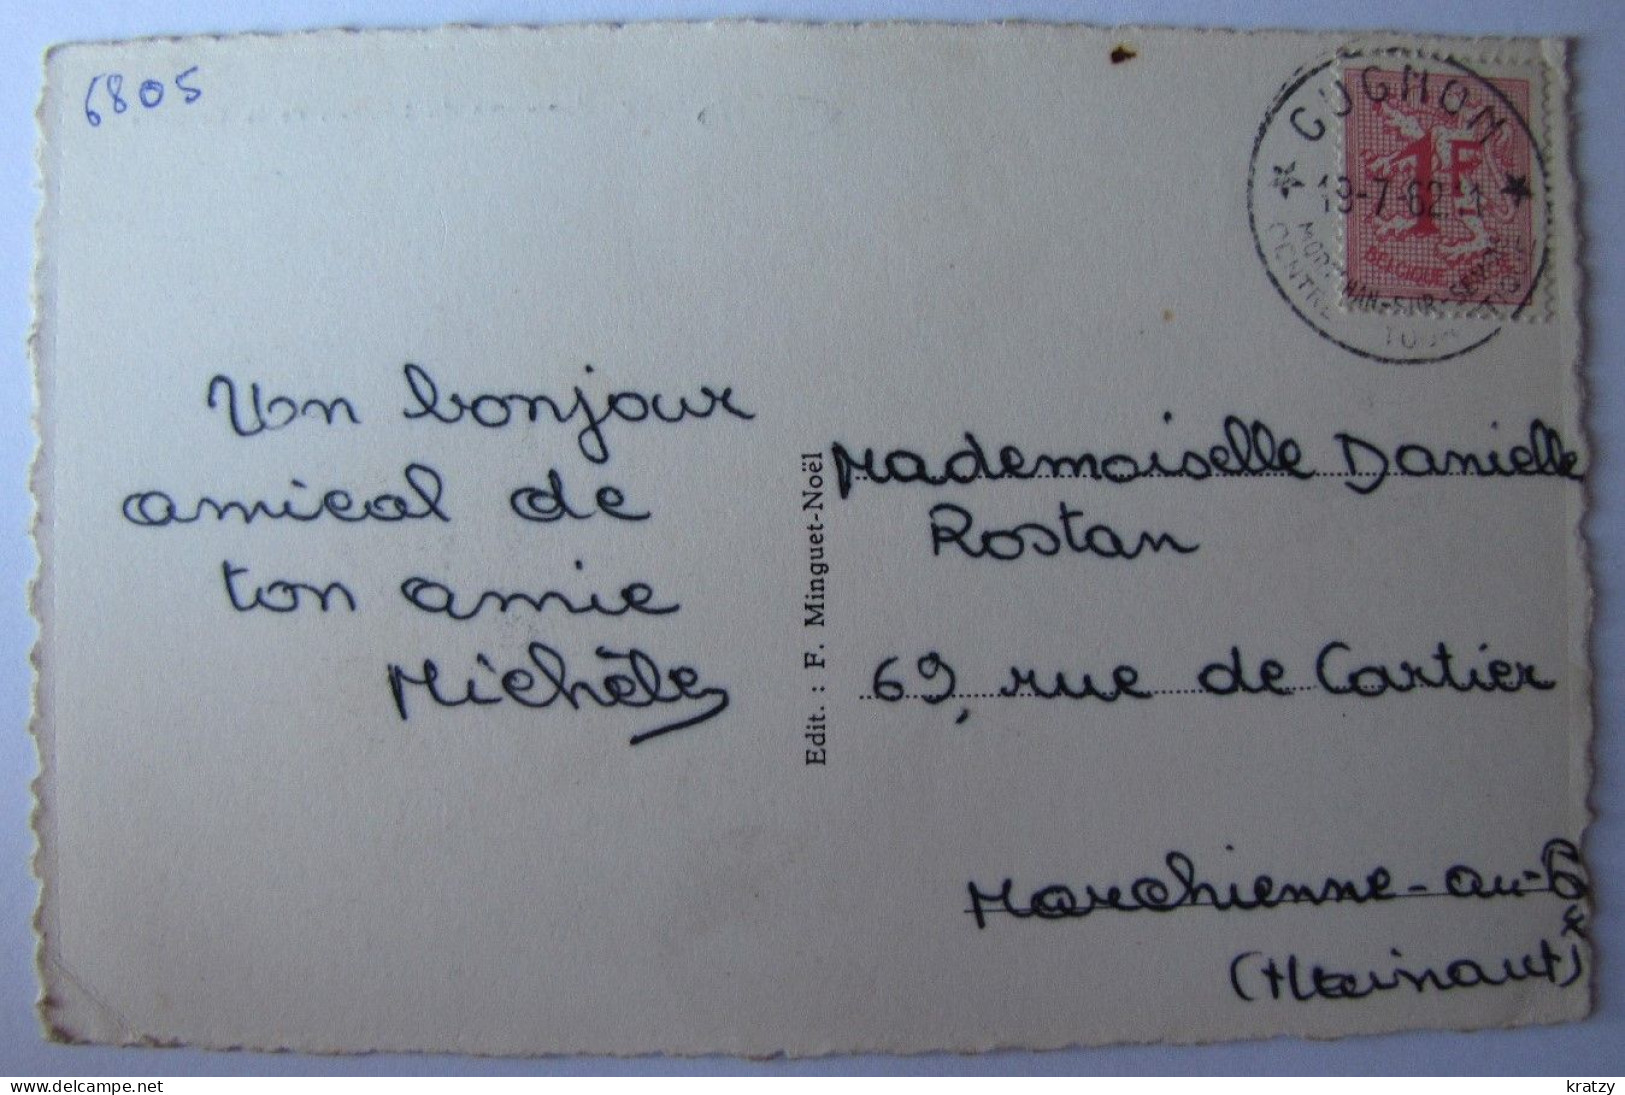 6805
CUGNON
19-7-62
1F
BELGIQUE
-SUR-
CENTRE
Un bonjour
amical de
ton amie
Michèle
Edit. : F. Minguet-Noël
Mademoiselle Danielle
Rostan
69, rue de Cartier
Marchienne-au-
(Hainaut)
delcampe.net
kratzy